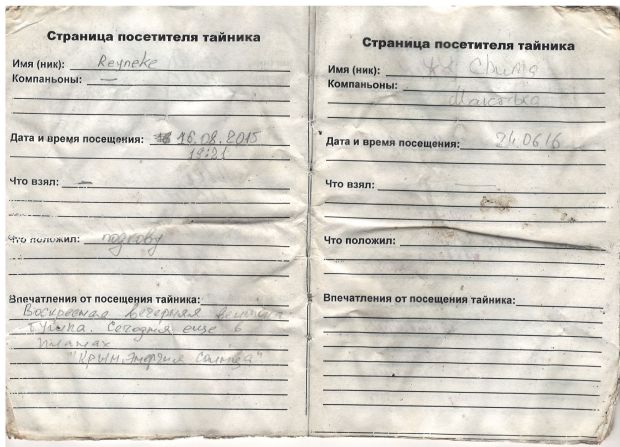 Страница посетителя тайника
Имя (ник): Reyneke
Компаньоны: —
Дата и время посещения: 16.08.2015
19:21
Что взял: —
Что положил: подкову
Впечатления от посещения тайника:
Воскресная вечерняя
Сегодня еще в
планах
"Крым. Энергия Солнца"
Страница посетителя тайника
Имя (ник):
Компаньоны:
Дата и время посещения: 24.06.16
Что взял:
Что положил:
Впечатления от посещения тайника: